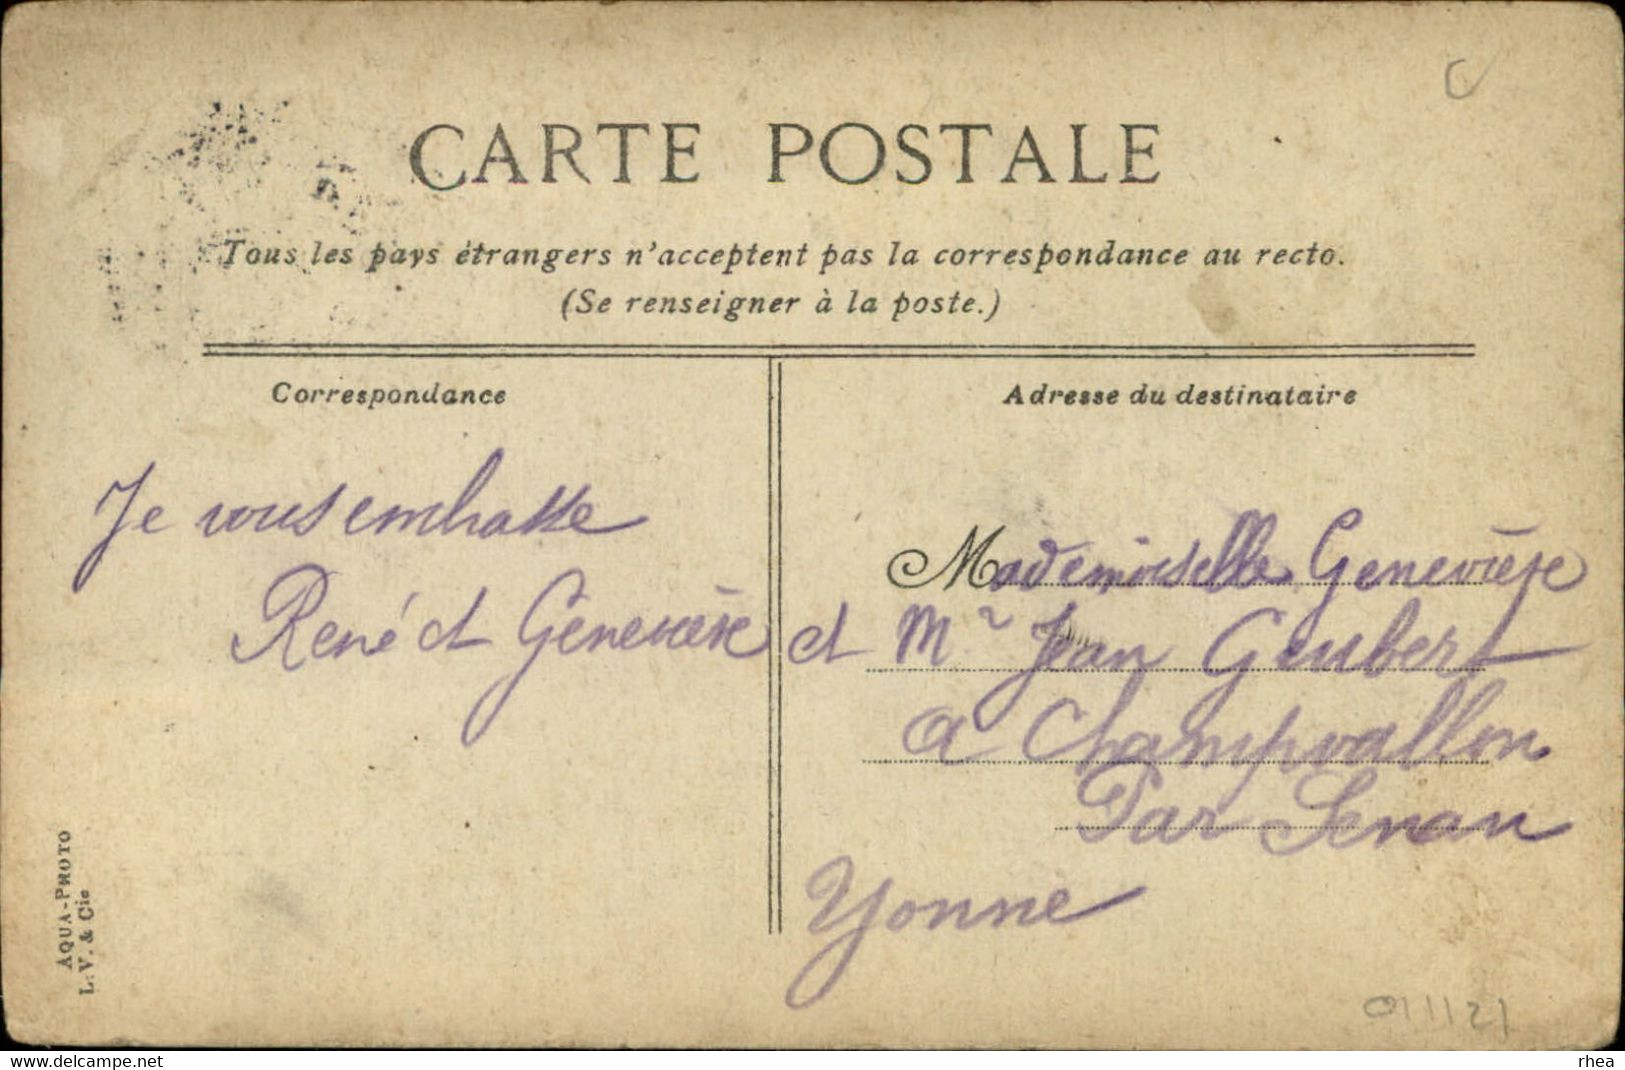 CARTE POSTALE
Tous les pays étrangers n'acceptent pas la correspondance au recto.
(Se renseigner à la poste.)
Correspondance
Je vous embrasse
René et Geneviève
Adresse du destinataire
Mademoiselle Geneviève
et Mr Jean Geubert
a Champvallon
Par Senan
Yonne
AQUA-PHOTO
L. V. & Cie
http://www.delcampe.net
rhea